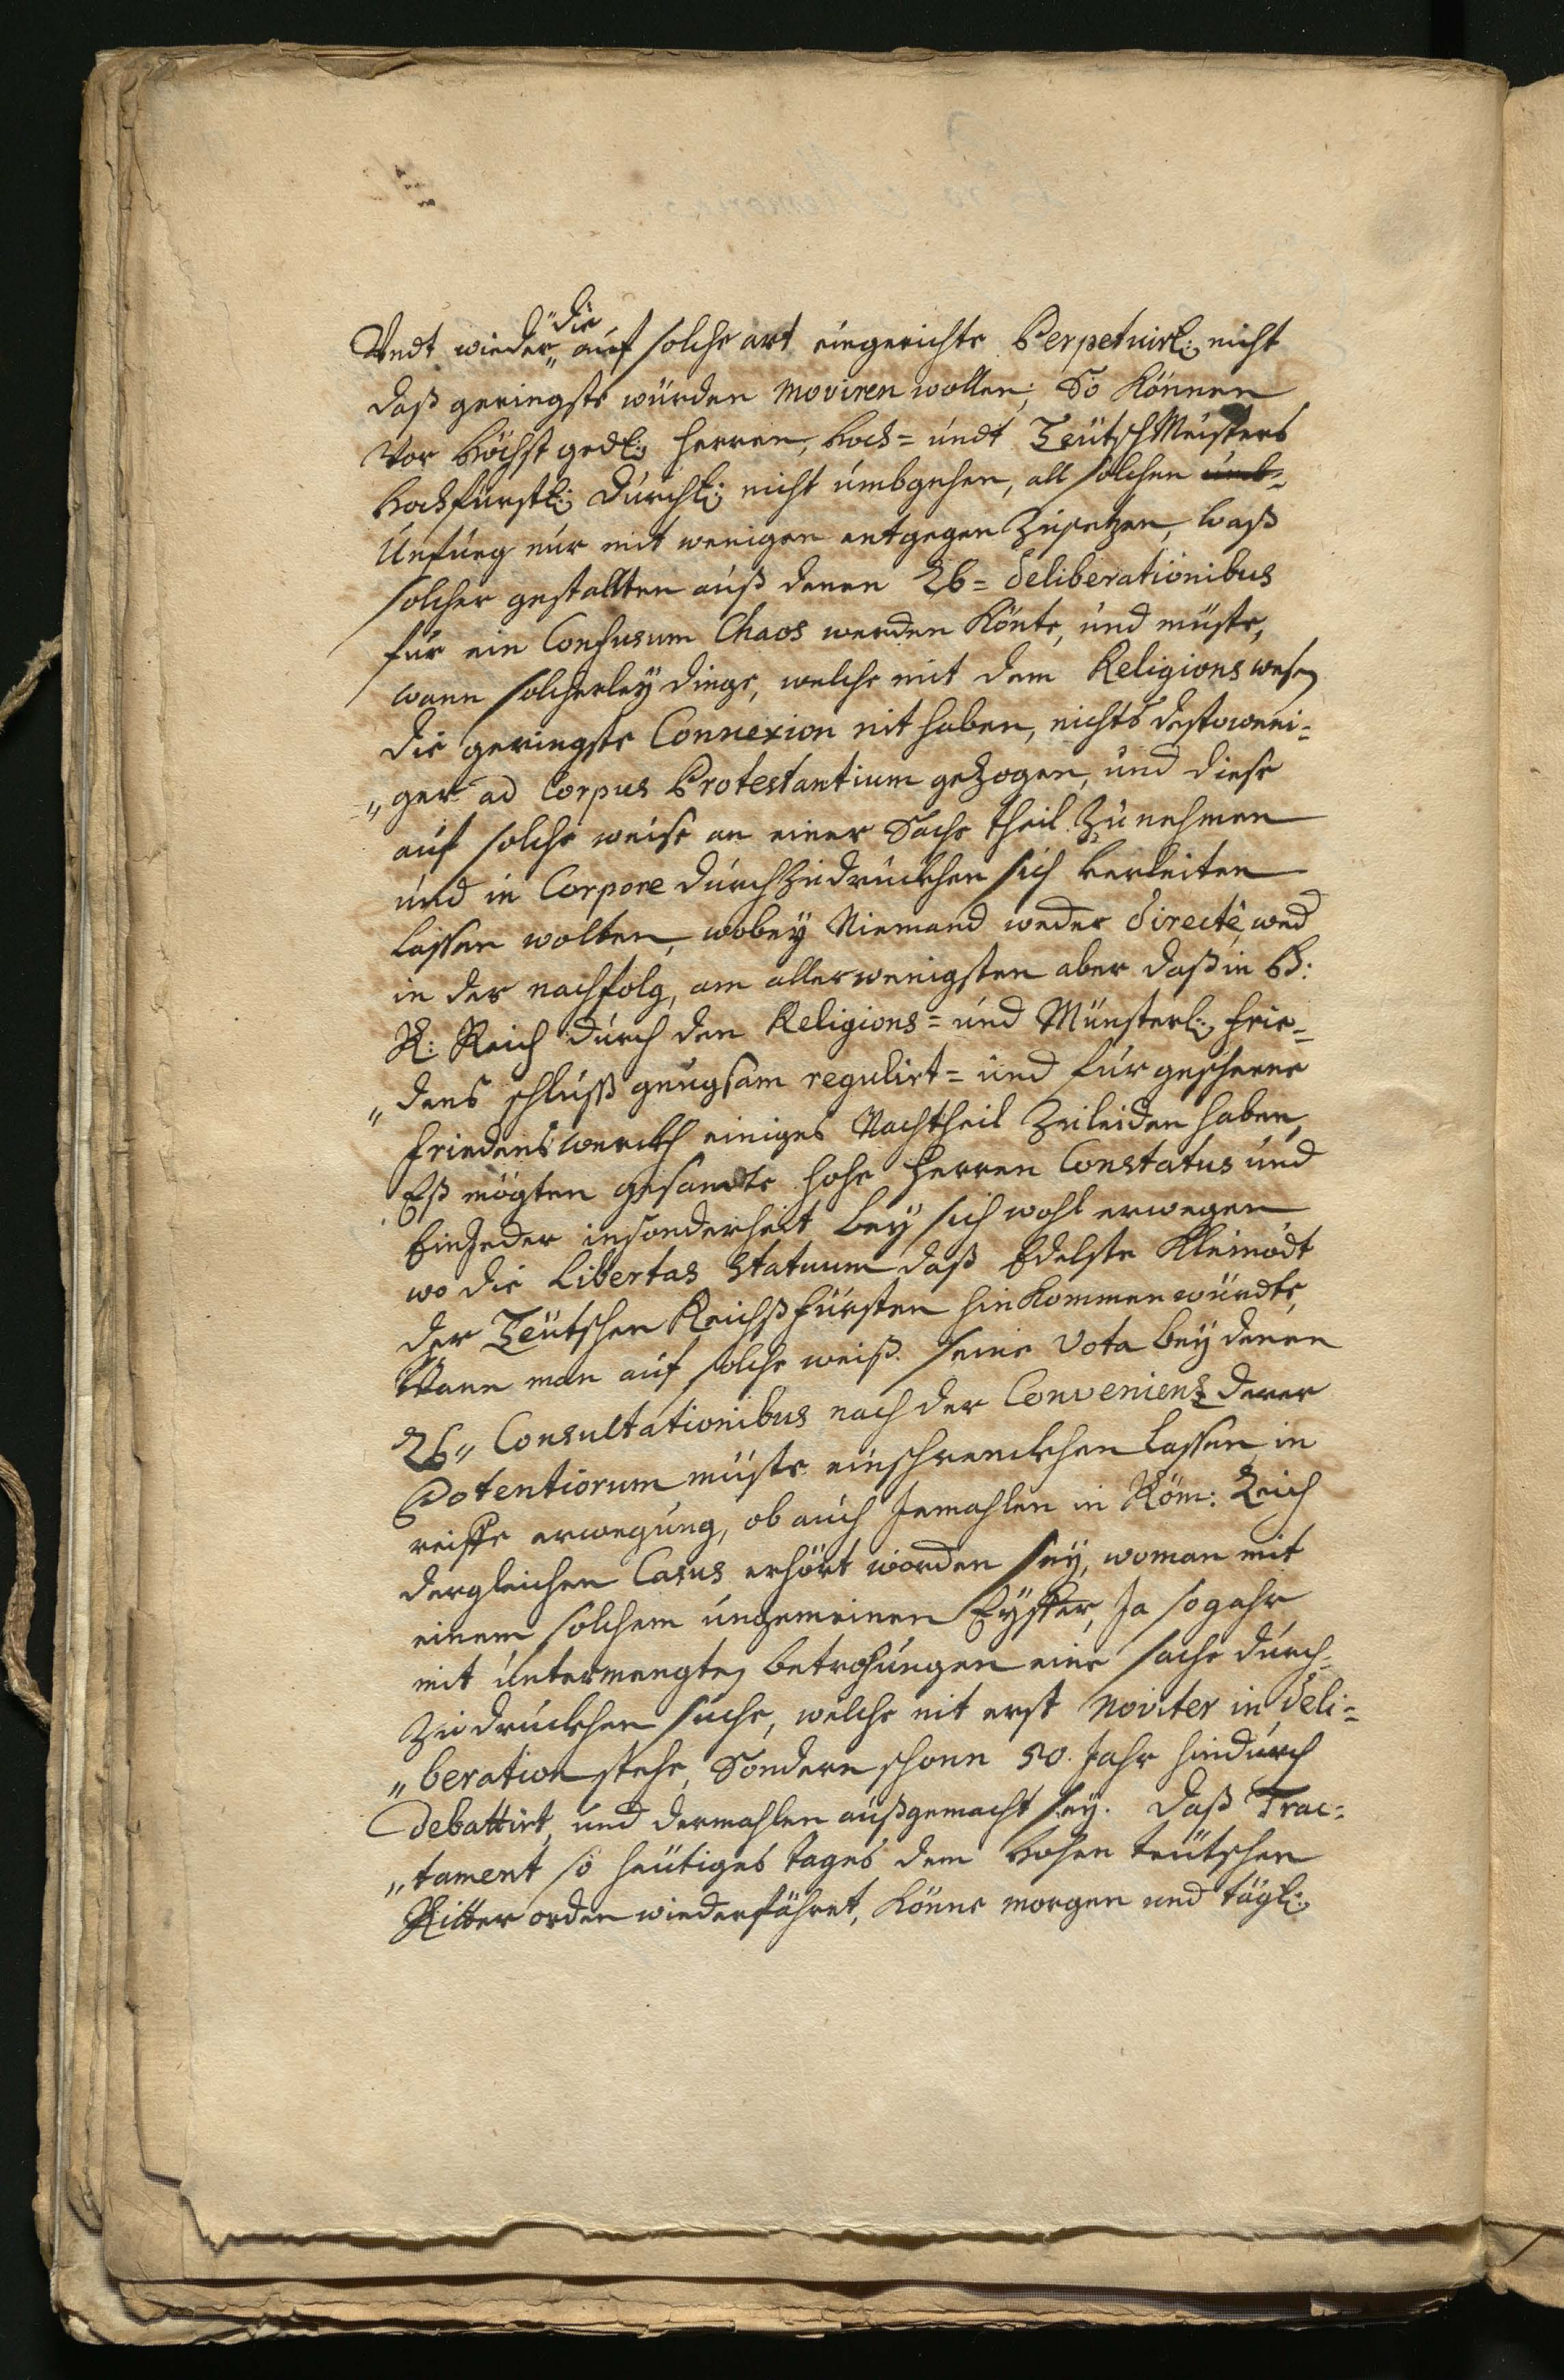 die
Undt wieder auf solche art eingerichte Perpetuirl: nicht
daß geringste würden moviren wollen; So können
Vor höchst gedl: Herren, Hoch= undt TeütschMeisters
Hochfürstl: Durchl: nicht umbgehen, all solchen umb=
Unfueg nur mit wenigen entgegen zusetzen, waß
solcher gestallten auß denen = deliberationibus
für ein Confusum Chaos werden könte, und müste,
wann solcherley dinge, welche mit dem Religionswesen
die geringste Connexion nit haben, nichts destoweni=
"ger ad Corpus Protestantium gezogen, und diese
auf solche weise an einer Sache theil zunehmen
und in Corpore durchzudruckhen sich verleiten
lassen wolten, wobey Niemand weder directè, wed
in der nachfolg, am allerwenigsten aber daß in H:
R: Reich durch den Religions= und Münsterl: Frie=
"dens schluß gnugsam regulirt= und fürgesehene
Friedenswerckh einiges Nachtheil zuleiden haben,
Eß mögten gesamte hohe Herren Constatus und
Ein Jeder insonderheit bey sich wohl erwegen
wo die Libertas Statuum daß Edelste Kleinodt
der Teütschen Reichßfürsten hinkommen würdte,
Wann man auf solche weiß seine Vota bey denen
" Consultationibus nach der Convenienz derer
Potentiorum müste einschrenckhen lassen, in
reiffe erwegung, ob auch Jemahlen in Röm: Reich
dergleichen Casus erhört worden sey, woman mit
einem solchem ungemeinen Eyffer, Ja sogahr
mit untermengten betrohungen eine sache durch=
zudruckhen suche, welche nit erst noviter in deli=
"beration stehe, Sondern schonn 50. Jahr hindurch
debattirt, und dermahlen außgemacht sey. Daß Trac=
"tament so heütiges tages dem Hohen teütschen
Ritter orden wiederfähret, könne morgen und tägl: